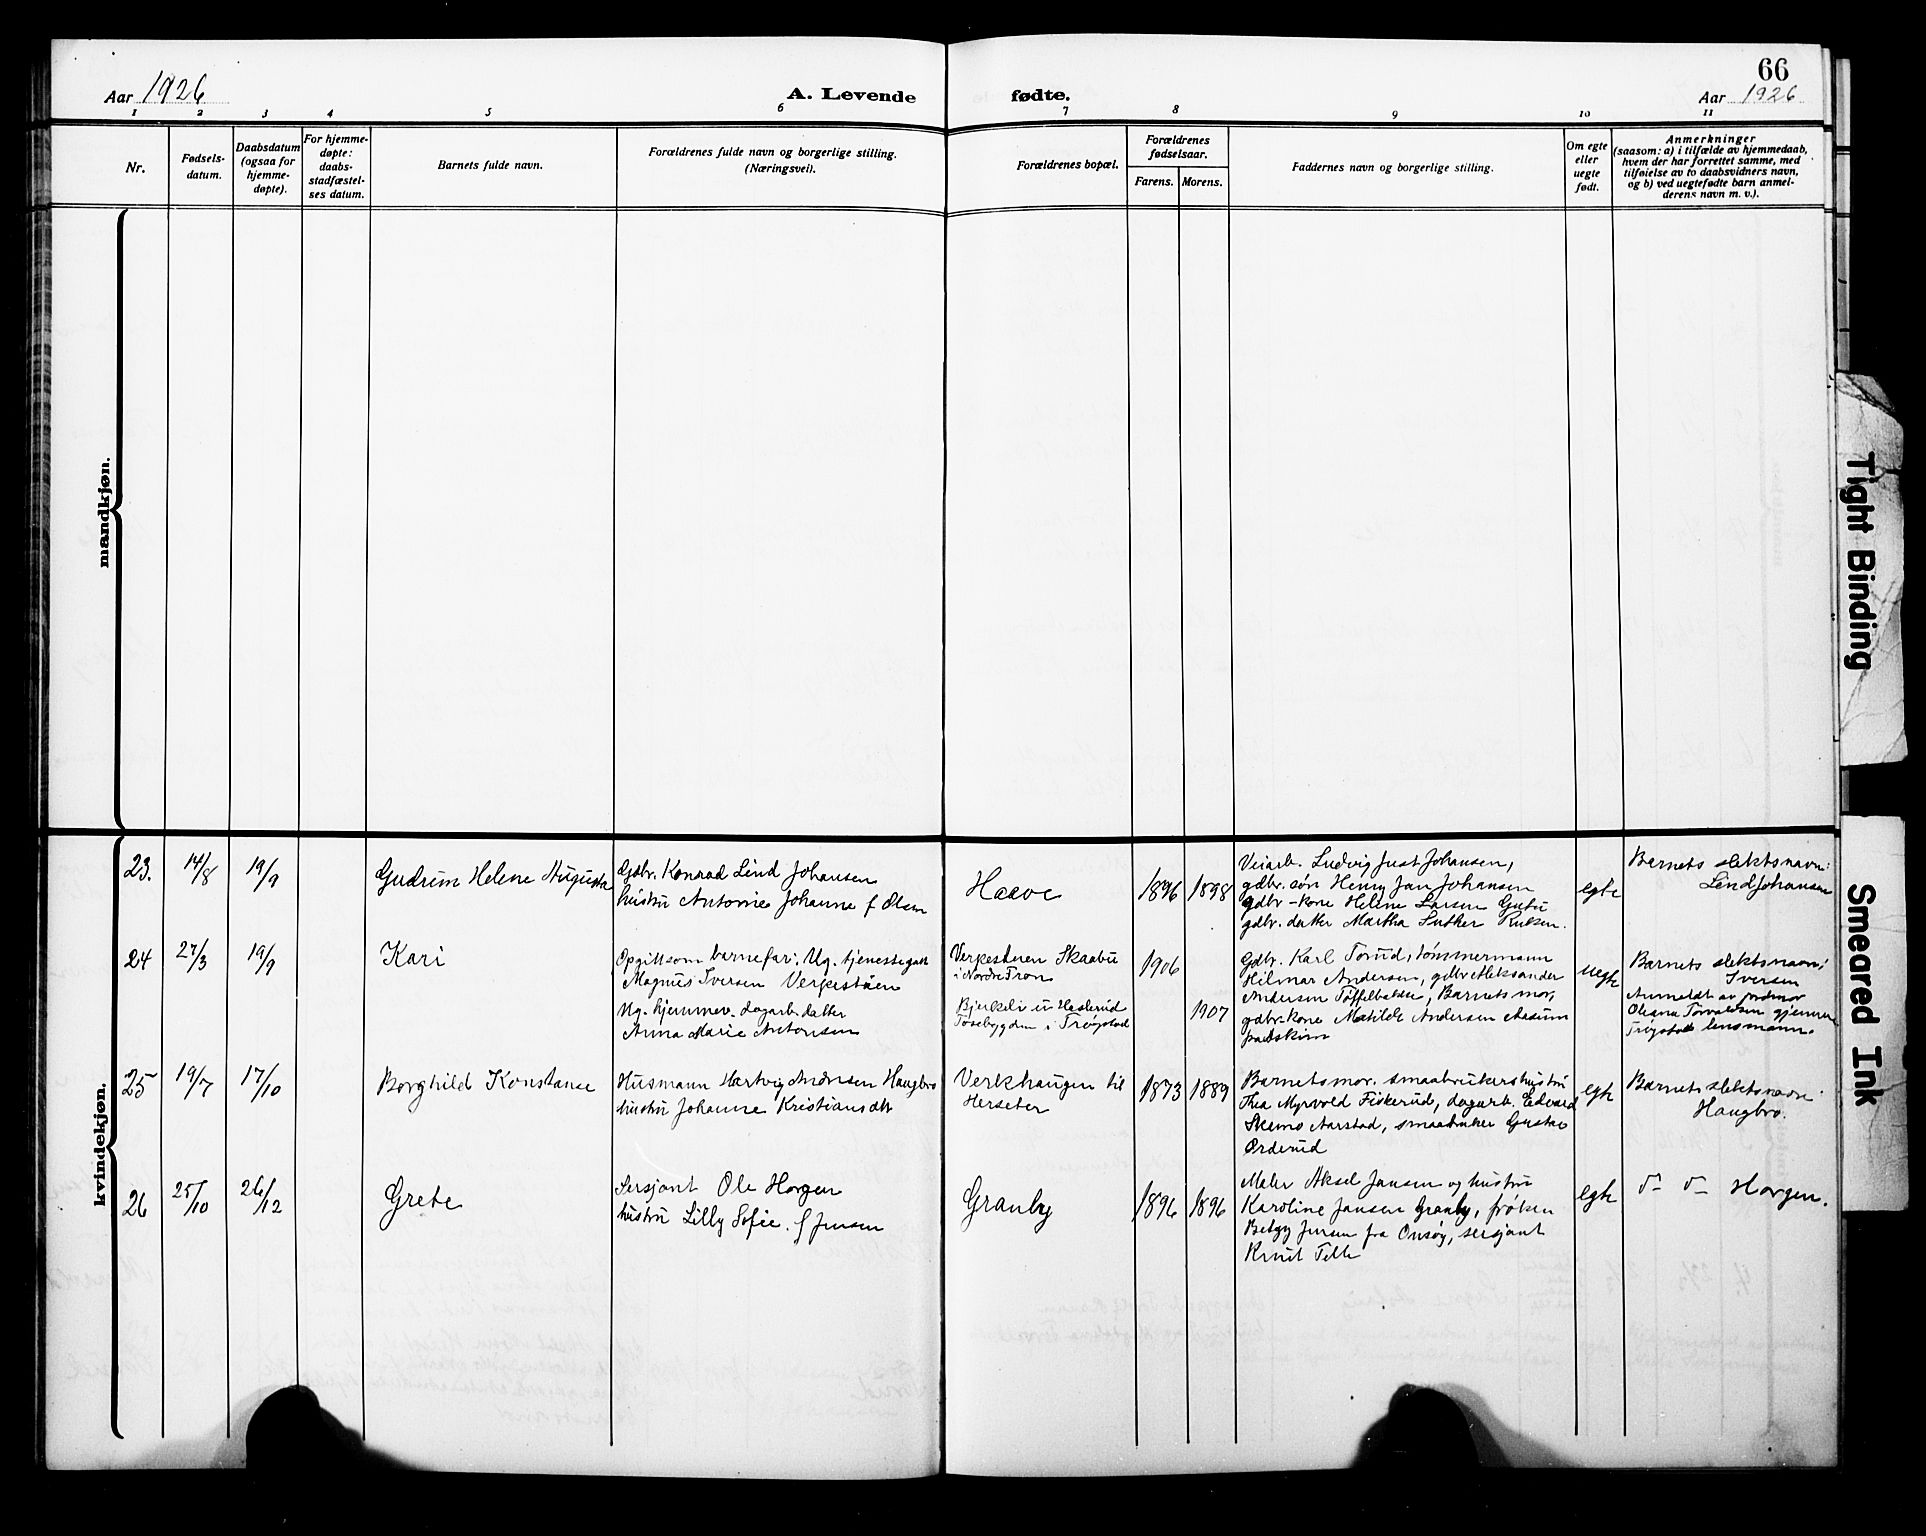 66
Aar 1926
A. Levende
fødte.
Aar 1926
1 2 3 4 5 6 7 8 9 10 11
Nr.
Fødsels-
datum.
Daabsdatum
(ogsaa for
hjemme-
døpte).
For hjemme-
døpte:
daabs-
stadfæstel-
ses datum.
Barnets fulde navn.
Forældrenes fulde navn og borgerlige stilling.
(Næringsvei).
Forældrenes bopæl.
Forældrenes
fødselsaar.
Farens. Morens.
Faddernes navn og borgerlige stilling.
Om egte
eller
uegte
født.
Anmerkninger
(saasom: a) i tilfælde av hjemmedaab,
hvem der har forrettet samme, med
tilføielse av to daabsvidners navn,
og b) ved uegtefødte barn anmel-
derens navn m. v.).
mandkjøn.
kvindekjøn.
23.
14/8
19/9
Gudrun Helene Augusta
Gdbr. Konrad Lind Johansen
hustru Antonie Johanne f. Olsen
Haave
1896
1898
Veiarb. Ludvig Just Johansen,
gdbr. søn Henry Jan Johansen
gdbr-kone Helene Larsen
gdbr. datter Martha Luther
egte
Barnets slektsnavn:
Lind Johansen
24
27/3
19/9
Kari
Opgitt som barnefar: Ug. tjenestegutt
Magnus Iversen Verkestuen
Ug. hjemmev. dagarb. datter
Anna Marie Antonsen
Verkestuen Skaabu
i Nordre Fron
Bjerkeli u Haslerud
i Trøgstad
1906
1907
Gdbr. Karl Torud, tømmermann
Hilmar Andersen, gdbr Aleksander
Andersen, Barnets mor,
gdbr-kone Matilde Andersen
uegte
Barnets slektsnavn:
Iversen
Anmeldt av jordmor
Torvaldsen gjennem
Trøgstad lensmann.
25
19/7
17/10
Borghild Konstanse
Husmann Hartvig Andersen Haugbro
hustru Johanne Kristiansdtr
Verkhaugen til
Herseter
1873
1889
Barnets mor, smaabrukers hustru
Thea Myrvold Fiskerud, dagarb. Edvard
Aarstad, smaabruker Gustav
Orderud
egte
Barnets slektsnavn:
Haugbro.
26
25/10
26/12
Grete
Sersjant Ole Horgen
hustru Lilly Sofie f Jensen
Granby
1896
1896
Maler Aksel Jansen og hustru
Karoline Jansen Granby, frøken
Betzy Jensen fra Onsøy, sersjant
Knut
egte
d- d- Horgen.
Tight Binding
Smeared Ink